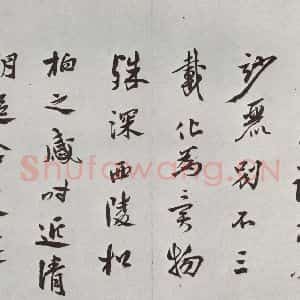 妙麗别不三
載化為異物
殊深西陵松
柏之感时近清
明
Shufawang.CN